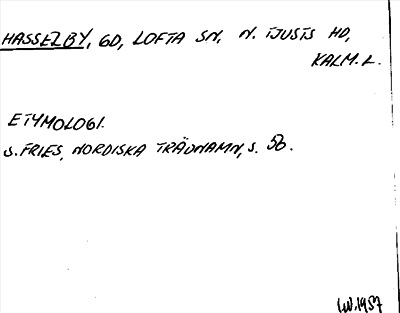 HASSELBY, GD, LOFTA SN, N. TJUSTS HD,
KALM. L.
ETYMOLOGI.
S. FRIES, NORDISKA TRÄDNAMN, S. 58.
1957